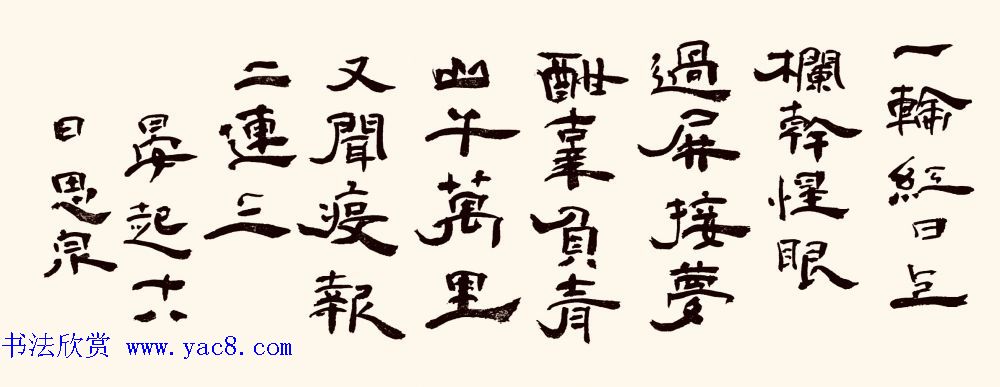 一輪紅日上
欄幹惺眼
過屏接夢
酣辜負青
山千萬里
又聞疫報
二連三
晏起十八
日思泉
书法欣赏 www.yac8.com